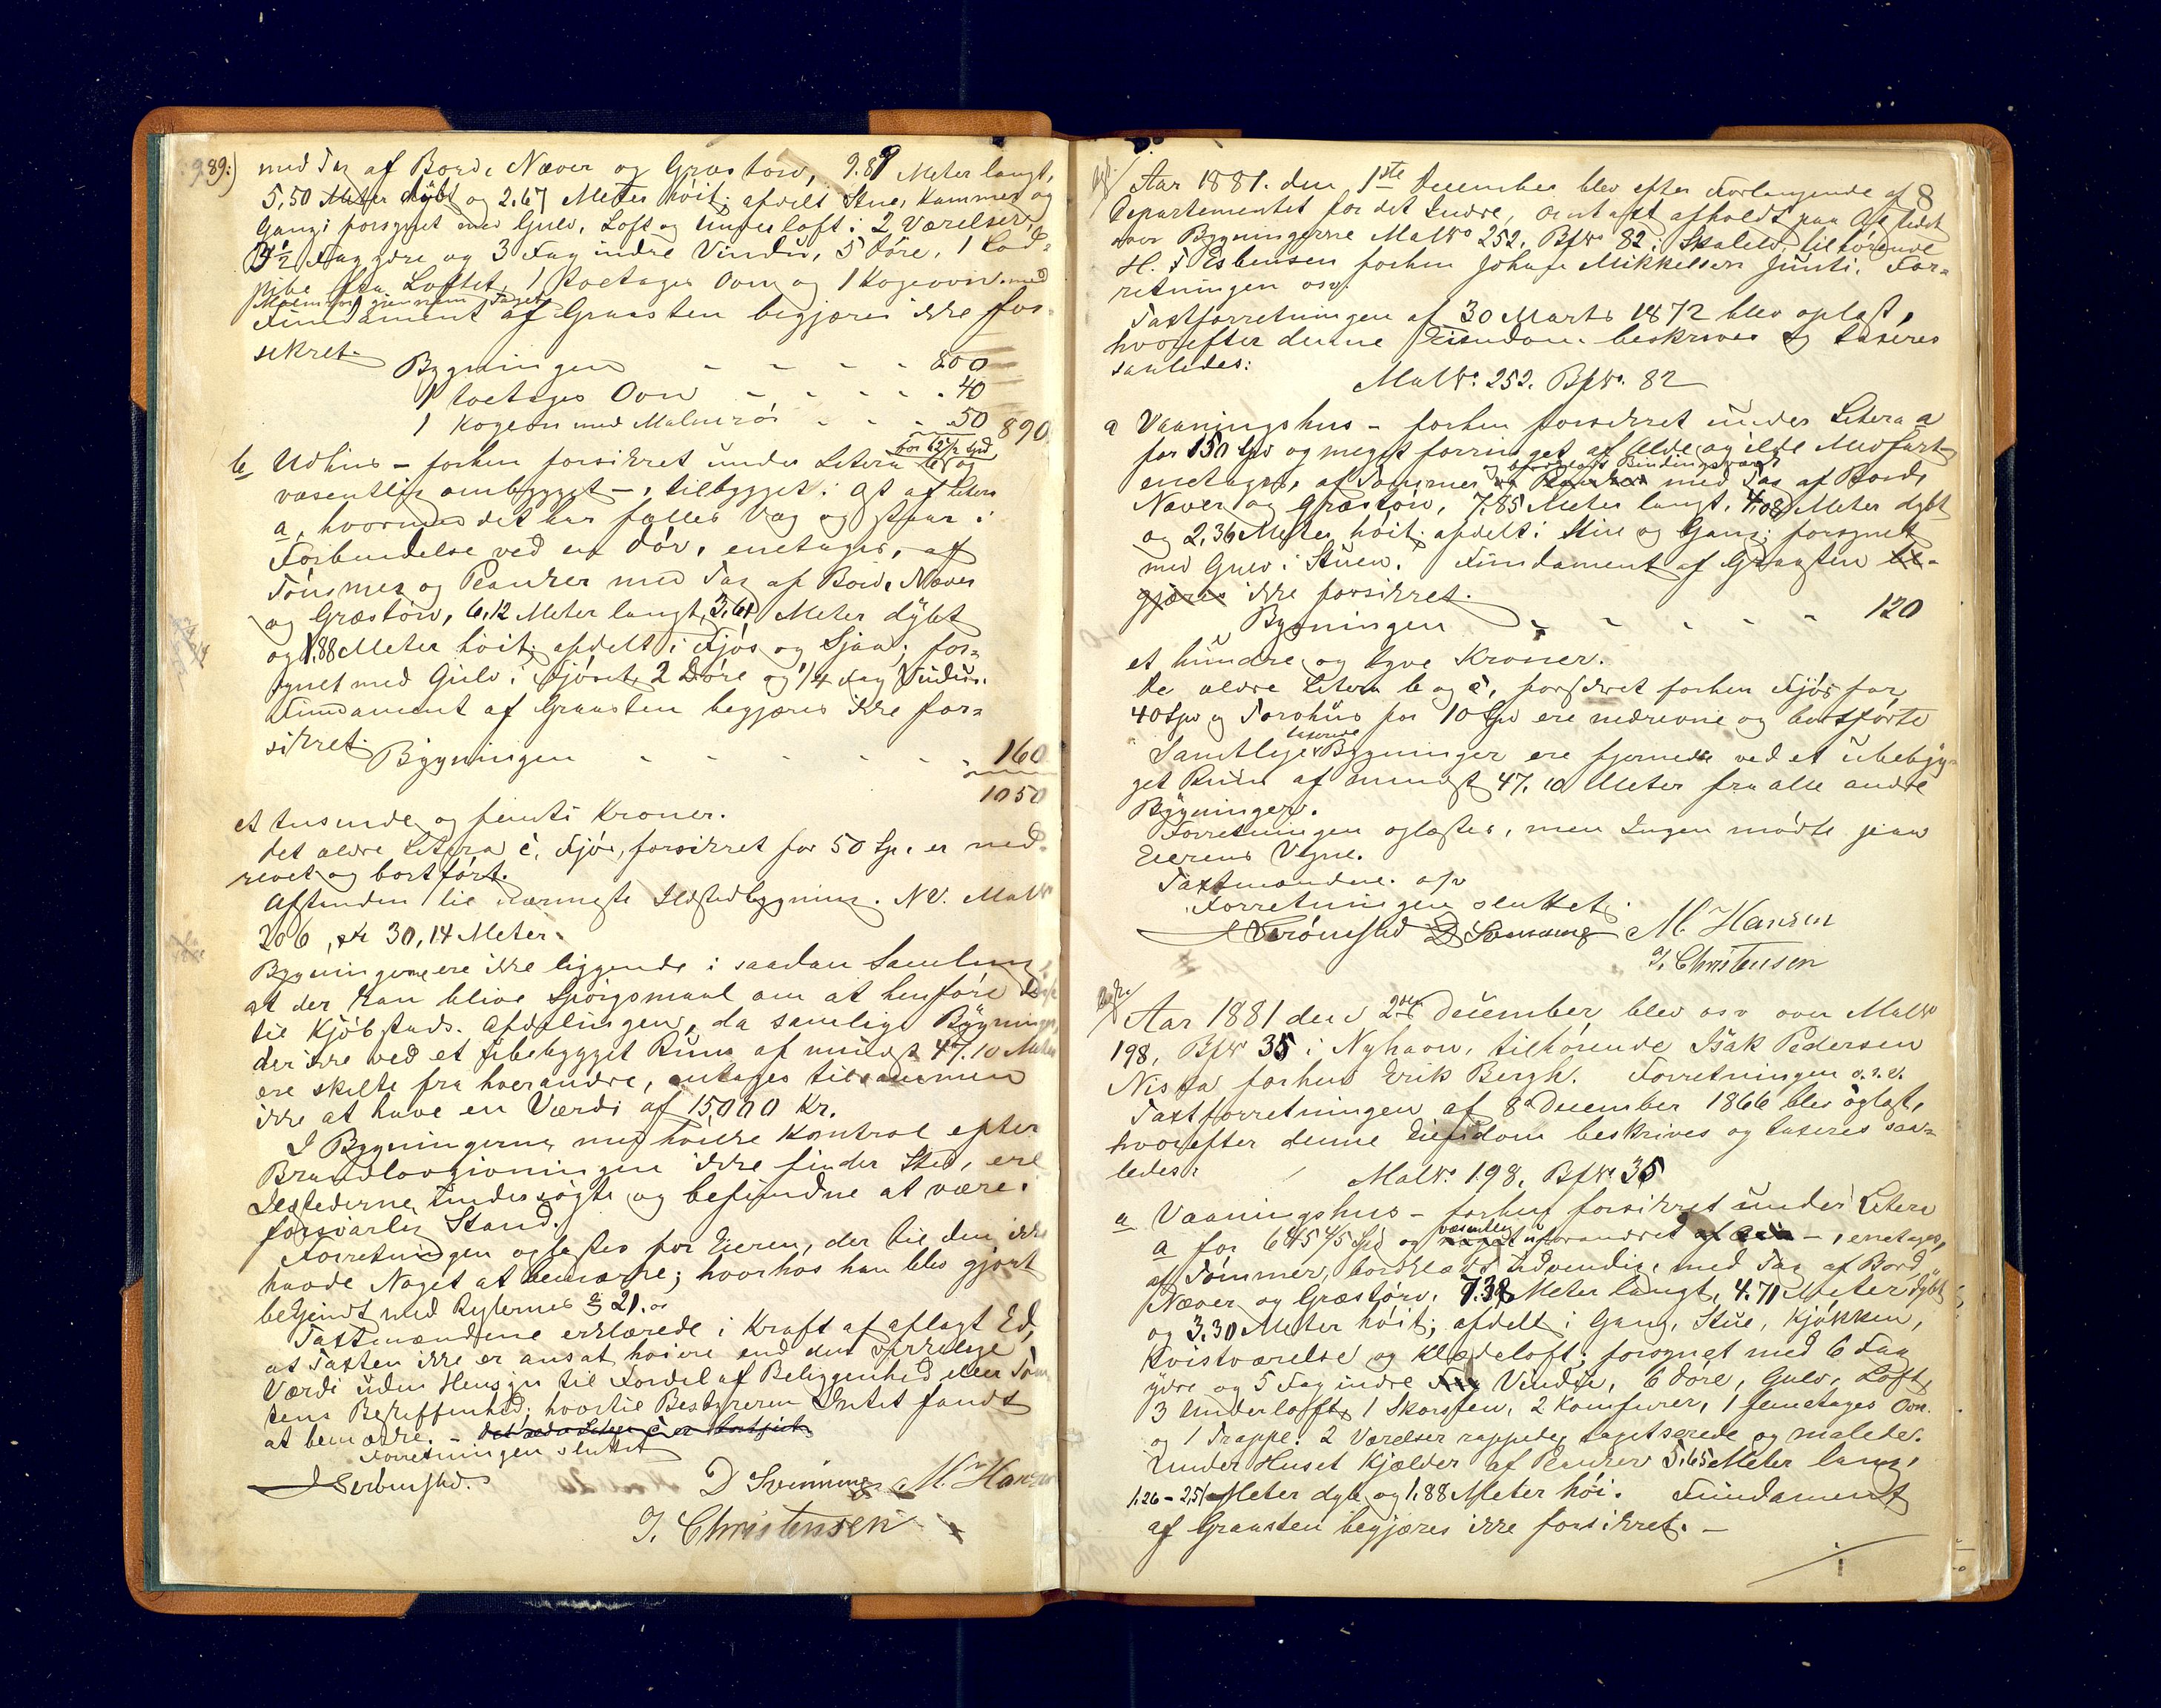 9.89:)
med Tag af Bord, Næver og Græstörv, 9.89 Meter langt,
5,50 Meter dybt og 2.67 Meter höit; afdelt i Stue, Kammer og
Gang; forsynet med Gulv, Loft og Underloft i 2 Værelser,
3½ Fag ydre og 3 Fag indre Vindu, 5 Döre, 1
Loftet, 1 toetages Ovn og 1 Kogeovn med
Malmrör gjennem Taget
Fundament af Graasten begjæres ikke for-
sikret.
Bygningen - - - - 800
1 toetages Ovn - - - - 40
1 Kogeovn med Malmrör - - - 50 890
b Udhus - forhen forsikret under Litera b for 62½ Spd og
væsentlig ombygget -, tilbygget Litera
a, hvormed det har fælles Væg og staar i
Forbindelse ved en Dör, enetages, af
Tömmer og Planker med Tag af Bord, Næver
og Græstörv, 6,12 Meter langt, 3,61 Meter dybt
og 1.88 Meter höit; afdelt i Fjös og Sjaa; for-
synet med Gulv i Fjöset, 2 Döre og 1/4 Fag Vindu.
Fundament af Graasten begjæres ikke for-
sikret.
Bygningen - - - - - 160
1050
et tusinde og femti Kroner.
Det ældre Litera c, Fjös, forsikret for 50 Sp. er ned-
revet og bortfört.
Afstanden til nærmeste Ildstedbygning. N.V. MatNo
206, er 30,14 Meter.
Bygningerne ere ikke liggende i saadan Samling,
at der kan blive Spörgsmaal om at henföre disse
til Kjöbstads Afdelingen, da samtlige Bygninger,
der ikke ved et ubebygget Rum af mindst 47.10 Meter
ere skilte fra hverandre, antages tilsammen
ikke at have en Værdi af 15000 Kr.
I Bygningerne, med höiere Kontrol efter
Brandlovgivningen ikke finder Sted, ere
Ildstederne undersögte og befundne at være i
forsvarlig Stand.
Forretningen oplæstes for Eieren, der til den ikke
havde Noget at bemærke; hvorhos han blev gjort
bekjendt med Reglernes § 21.
Taxtmændene erklærede i Kraft af aflagt Ed,
at Taxten ikke er ansat höiere end den virkelige
Værdi uden Hensyn til Fordel af Beliggenhed eller Tom-
tens Beskaffenhed; hvortil Bestyreren Intet fandt
at bemærke. - Det ældre Litera c er bortfört
Forretningen sluttet
D Svenning M. Hansen
T. Christensen
8
Aar 1881. den 1ste December blev efter Forlangende af
Departementet for det Indre, Omtaxt afholdt paa
over Bygningerne MatNo 252. BfNo 82 i Skalelv, tilhörende
H. T Esbensen forhen Johan Mikkelsen Junti. For-
retningen osv.
Taxtforretningen af 30 Marts 1872 blev oplæst,
hvorefter denne Eiendom beskrives og taxeres
saaledes:
MatNo. 252. BfNo. 82
a Vaaningshus - forhen forsikret under Litera a
for 150 Spd og meget forringet af Ælde og ilde Medfart -
enetages, af Tömmer og bordklædt Bindingsværk med Tag af Bord,
Næver og Græstörv, 7.85 Meter langt, 4,08 Meter dybt
og 2,36 Meter höit; afdelt i Stue og Gang; forsynet
med Gulv i Stuen. Fundament af Graasten be-
gjæres ikke forsikret.
Bygningen - - - - - 120
et hundre og tyve Kroner.
De ældre Litera b og c, forsikret forhen Fjös for
40 Spd og Torvhus for 10 Spd ere nedrevne og bortförte
Samtlige Bygninger ere fjernede ved et ubebyg-
get Rum af mindst 47.10 Meter fra alle andre
Bygninger.
Forretningen oplæstes, men Ingen mödte paa
Eierens Vegne.
Taxtmændene. osv
Forretningen sluttet.
D Svenning M. Hansen
T. Christensen
Aar 1881 den 2den December blev osv over MatNo
198, BfNo 35 i Nyhavn, tilhörende Isak Pedersen
Niska forhen Erik Bergh. Forretningen o.s.v.
Taxtforretningen af 8de December 1866 blev oplæst,
hvorefter denne Eiendom beskrives og taxeres saa-
ledes:
MatNo. 198, BfNo 35
a Vaaningshus - forhen forsikret under Litera
a for 645 4/5 Spd og væsentlig uforandret -, enetages,
af Tömmer, bordklædt udvendig, med Tag af Bord,
Næver og Græstörv, 7.38 Meter langt, 4.71 Meter dybt
og 3,30 Meter höit; afdelt i Gang, Stue, Kjökken,
Kvistværelse og Klædeloft; forsynet med 6 Fag
ydre og 5 Fag indre Vindu, 6 Döre, Gulv, Loft,
3 Underloft, 1 Skorsten, 2 Komfurer, 1 femetages Ovn.
og 1 Trappe. 2 Værelser rappede, tapetserede og malede.
Under Huset Kjælder af Planker 5,65 Meter lang,
1,26 - 2,51 Meter dyb og 1,88 Meter höi. Fundament
af Graasten begjæres ikke forsikret. -